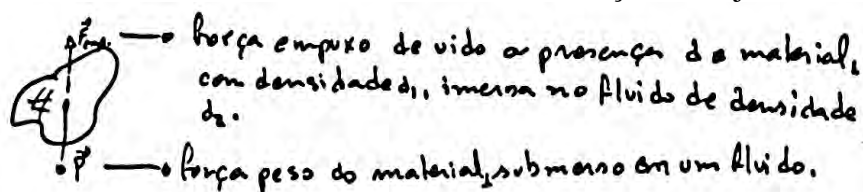 F emp. → força empuxo de vido a presença do material,
com densidade d₁, imersa no fluido de densidade
d₂.
P → força peso do material, submerso em um fluido.